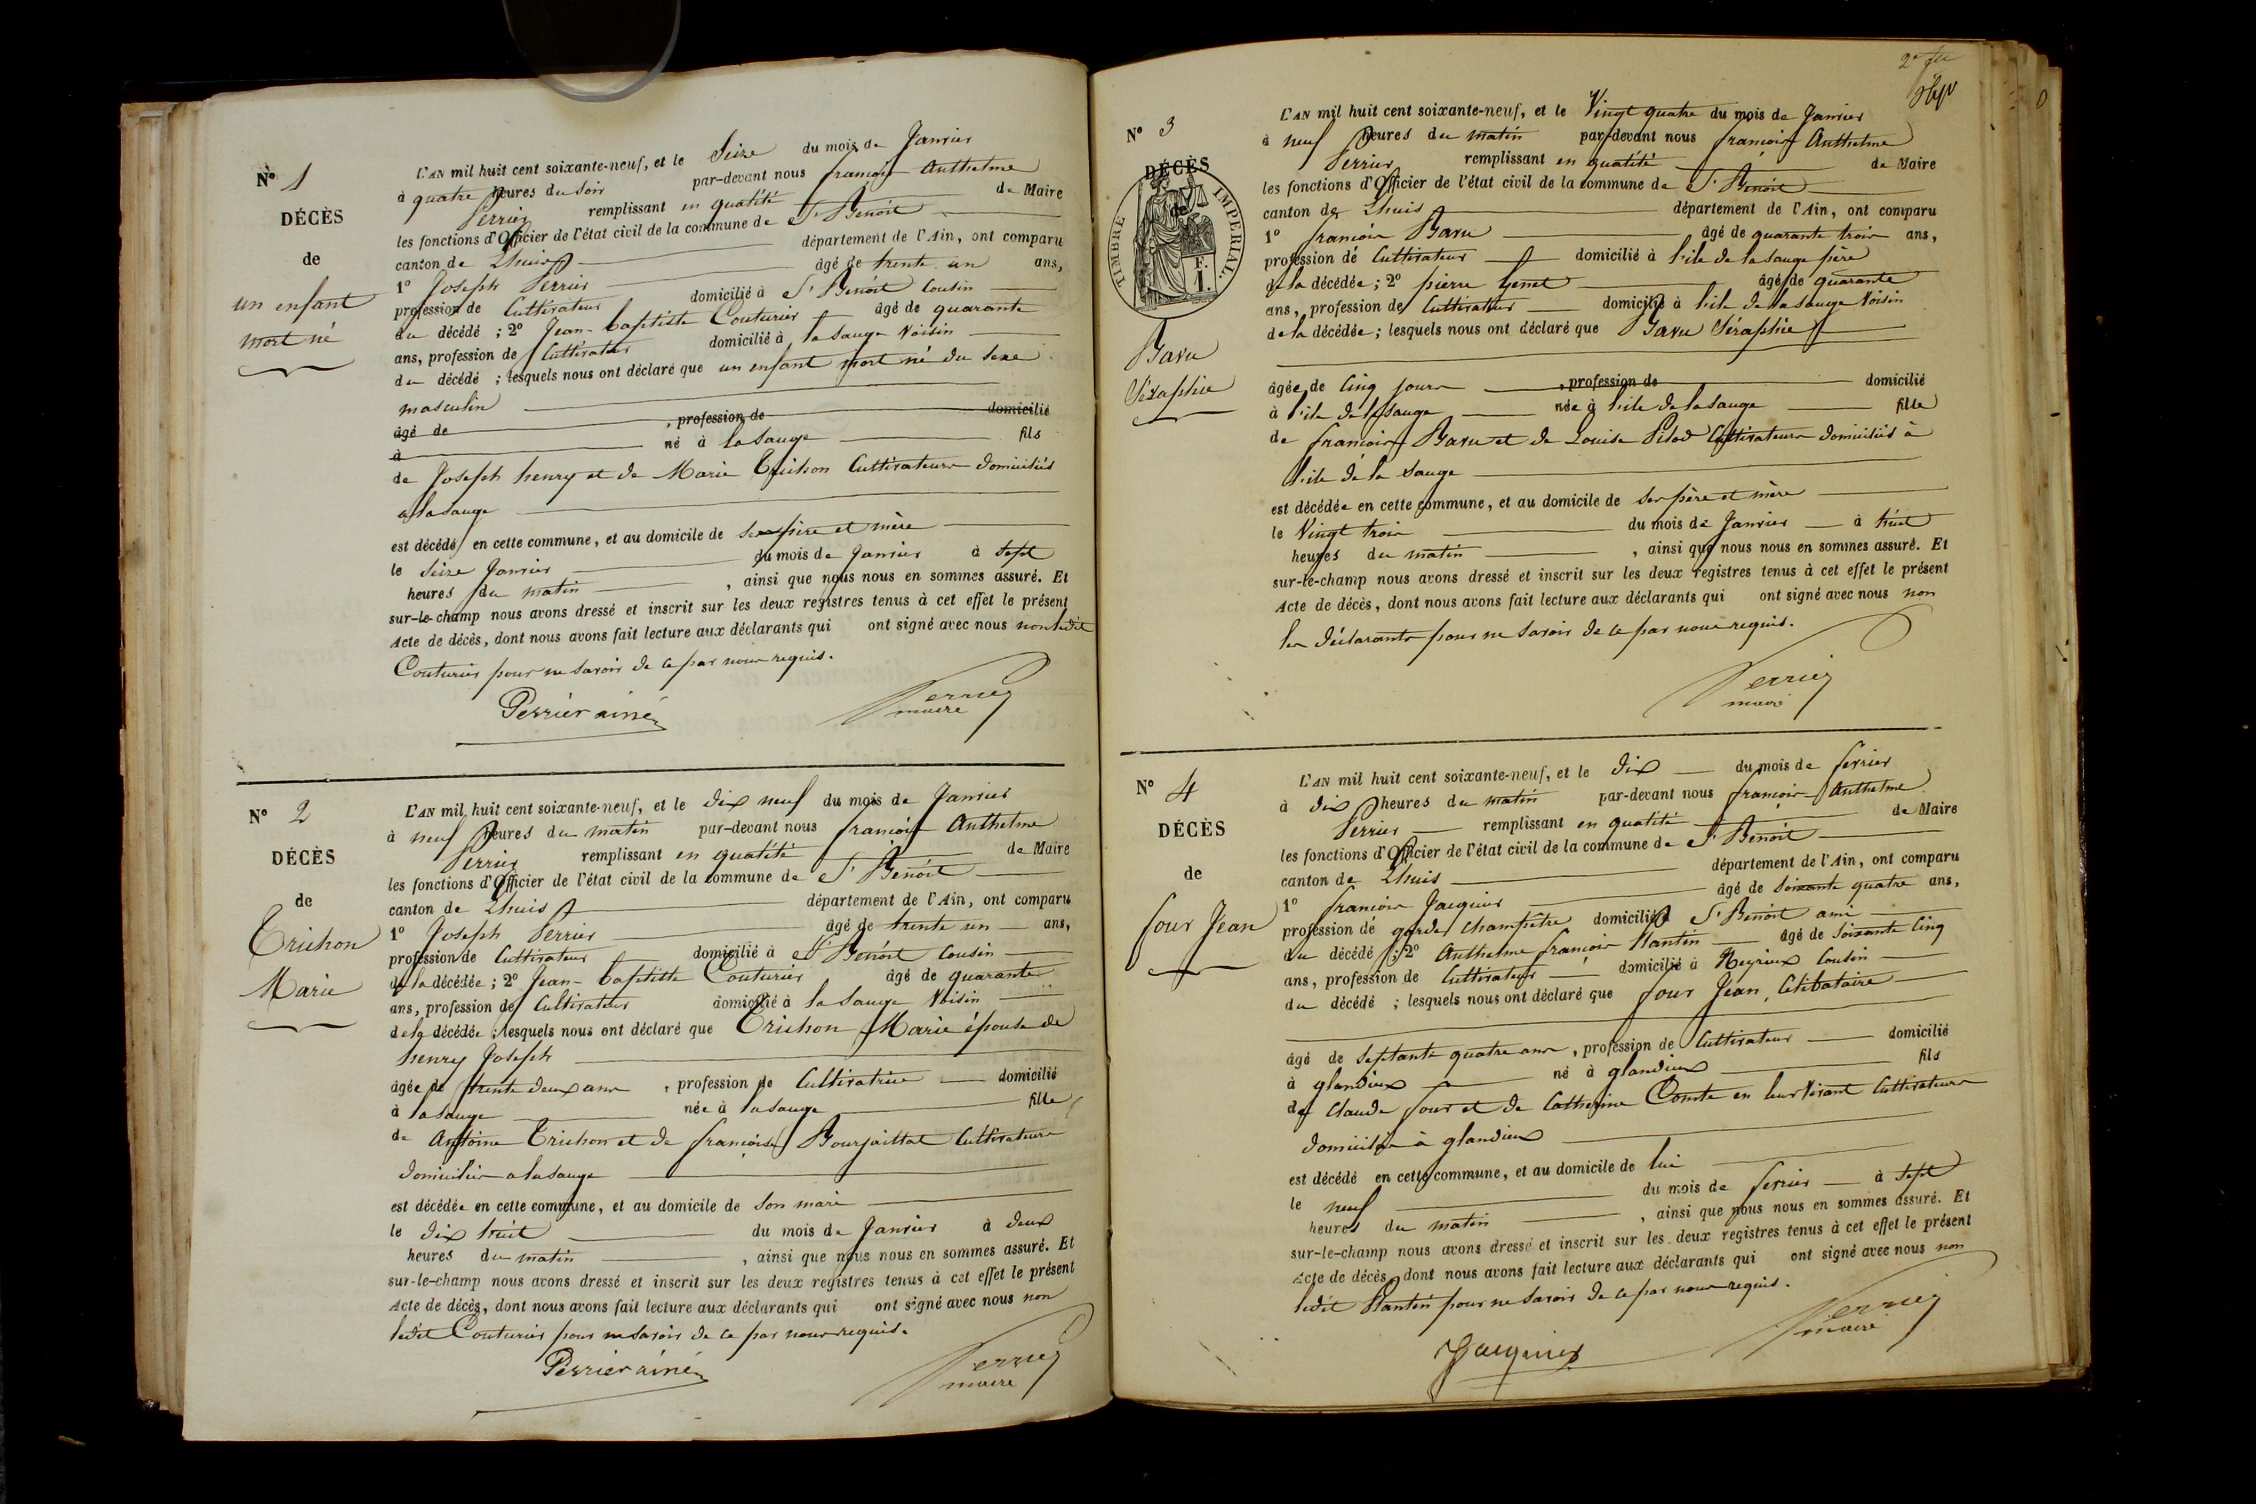 Nº 1
DÉCÈS
de
un enfant
mort né
L'AN mil huit cent soixante-neuf, et le Seize du mois de Janvier
à quatre heures du soir par-devant nous françois Anthelme
Perrier remplissant en qualité de Maire
les fonctions d'Officier de l'état civil de la commune de St Benoit
canton de Lhuis département de l'Ain, ont comparu
1º Joseph Perrier âgé de trente un ans,
profession de Cultivateur domicilié à St Benoit Cousin
du décédé ; 2º Jean-Baptiste Couturier âgé de quarante
ans, profession de Cultivateur domicilié à la Sauge Voisin
du décédé ; lesquels nous ont déclaré que un enfant mort né du sexe
masculin
âgé de , profession de domicilié
à né à la Sauge fils
de Joseph henry et de Marie Trichon Cultivateurs domiciliés
a la Sauge
est décédé en cette commune, et au domicile de ses père et mère
le Seize Janvier du mois de Janvier à Sept
heures du matin , ainsi que nous nous en sommes assuré. Et
sur-le-champ nous avons dressé et inscrit sur les deux registres tenus à cet effet le présent
Acte de décès, dont nous avons fait lecture aux déclarants qui ont signé avec nous non ledit
Couturier pour ne savoir de ce par nous requis.
Perrier ainé Perrier
maire
Nº 2
DÉCÈS
de
Trichon
Marie
L'AN mil huit cent soixante-neuf, et le dix neuf du mois de Janvier
à neuf heures du matin par-devant nous françois Anthelme
Perrier remplissant en qualité de Maire
les fonctions d'Officier de l'état civil de la commune de St Benoit
canton de Lhuis département de l'Ain, ont comparu
1º Joseph Perrier âgé de trente un ans,
profession de Cultivateur domicilié à St Benoit Cousin
de la décédée ; 2º Jean-Baptiste Couturier âgé de quarante
ans, profession de Cultivateur domicilié à la Sauge Voisin
de la décédée ; lesquels nous ont déclaré que Trichon Marie épouse de
henry Joseph
âgée de trente deux ans , profession de Cultivatrice domicilié
à la Sauge née à la Sauge fille
de Antoine Trichon et de françoise Bourjaillat Cultivateurs
domiciliés a la Sauge
est décédée en cette commune, et au domicile de son mari
le dix huit du mois de Janvier à deux
heures du matin , ainsi que nous nous en sommes assuré. Et
sur-le-champ nous avons dressé et inscrit sur les deux registres tenus à cet effet le présent
Acte de décès, dont nous avons fait lecture aux déclarants qui ont signé avec nous non
ledit Couturier pour ne savoir de ce par nous requis.
Perrier ainé Perrier
maire
Nº 3
DÉCÈS
de
TIMBRE IMPÉRIAL.
F.
1.
Bavu
Séraphie
L'AN mil huit cent soixante-neuf, et le Vingt quatre du mois de Janvier
à neuf heures du matin par-devant nous françois Anthelme
Perrier remplissant en qualité de Maire
les fonctions d'Officier de l'état civil de la commune de St Benoit
canton de Lhuis département de l'Ain, ont comparu
1º françois Bavu âgé de quarante trois ans,
profession de Cultivateur domicilié à l'ile de la Sauge père
de la décédée ; 2º pierre âgé de quarante
ans, profession de Cultivateur domicilié à l'ile de la Sauge Voisin
de la décédée ; lesquels nous ont déclaré que Bavu Séraphie
âgée de Cinq jours , profession de domicilié
à l'ile de la Sauge née à l'ile de la Sauge fille
de françois Bavu et de Louise Pilod Cultivateurs domiciliés à
l'ile de la Sauge
est décédée en cette commune, et au domicile de ses père et mère
le Vingt trois du mois de Janvier à huit
heures du matin , ainsi que nous nous en sommes assuré. Et
sur-le-champ nous avons dressé et inscrit sur les deux registres tenus à cet effet le présent
Acte de décès, dont nous avons fait lecture aux déclarants qui ont signé avec nous non
les déclarants pour ne savoir de ce par nous requis.
Perrier
maire
Nº 4
DÉCÈS
de
four Jean
L'AN mil huit cent soixante-neuf, et le dix du mois de février
à dix heures du matin par-devant nous françois Anthelme
Perrier remplissant en qualité de Maire
les fonctions d'Officier de l'état civil de la commune de St Benoit
canton de Lhuis département de l'Ain, ont comparu
1º françois Jacquier âgé de Soixante quatre ans,
profession de garde champêtre domicilié à St Benoit ami
du décédé ; 2º Anthelme françois Plantin âgé de Soixante Cinq
ans, profession de Cultivateur domicilié à Meyrieux Cousin
du décédé ; lesquels nous ont déclaré que four Jean, Célibataire
âgé de Septante quatre ans , profession de Cultivateur domicilié
à glandieux né à glandieux fils
de Claude four et de Catherine Comte en leur vivant Cultivateurs
domiciliés à glandieux
est décédé en cette commune, et au domicile de lui
le neuf du mois de février à Sept
heures du matin , ainsi que nous nous en sommes assuré. Et
sur-le-champ nous avons dressé et inscrit sur les deux registres tenus à cet effet le présent
Acte de décès, dont nous avons fait lecture aux déclarants qui ont signé avec nous non
ledit Plantin pour ne savoir de ce par nous requis.
Jacquier Perrier
maire